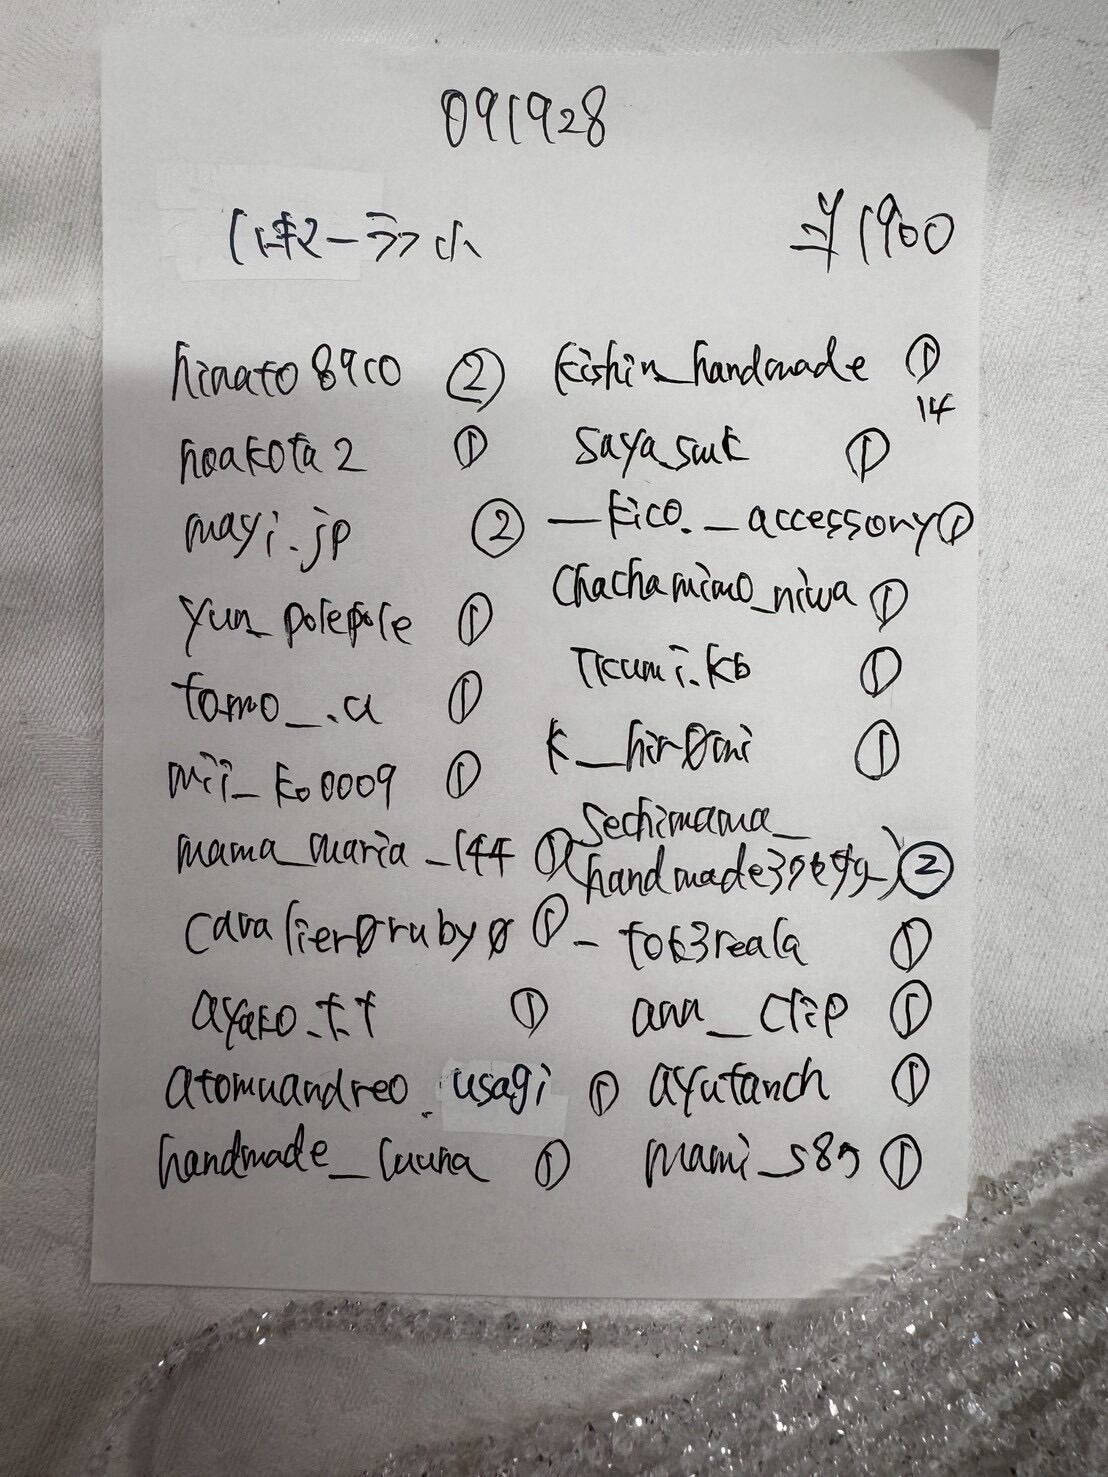 091928
¥1900
hinato8910 ②
hoakota2 ①
mayi.jp ②
yun_polepole ①
tomo__.a ①
mii_ko0009 ①
mama_maria_144 ①
cavalier0ruby0 ①
ayako.t.t ①
atomuandreo.usagi ①
handmade_luuna ①
kishin_handmade ①
14
saya_suk ①
_kico._accessory ①
chachamimo_niwa ①
k__hir0mi ①
(sechimama_
②
_tok3reala ①
ann__clip ①
ayutanch ①
mami_s89 ①